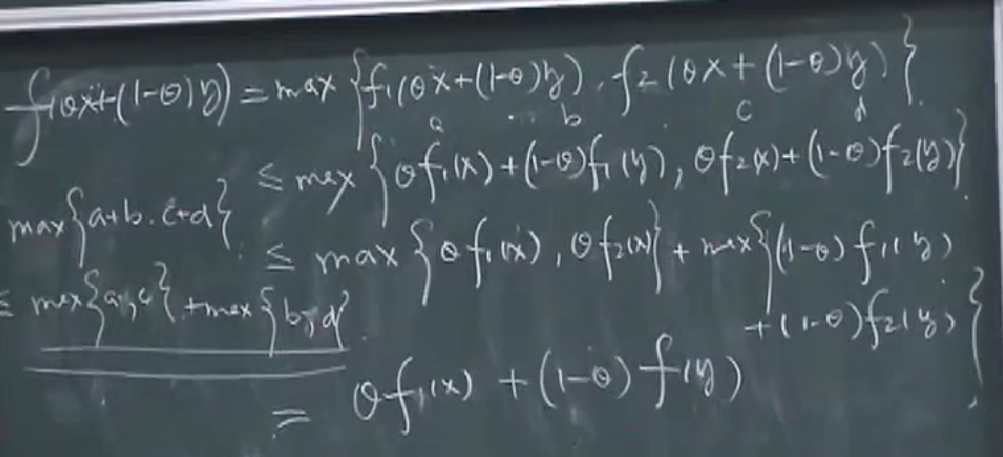 f(θx+(1-θ)y) = max {f₁(θx+(1-θ)y), f₂(θx+(1-θ)y)}
a b c d
≤ max {θf₁(x)+(1-θ)f₁(y), θf₂(x)+(1-θ)f₂(y)}
max{a+b, c+d}
≤ max {θf₁(x), θf₂(x)} + max{(1-θ)f₁(y)
≤ max{a, c} + max{b, d}
+(1-θ)f₂(y)}
= θf₁(x) + (1-θ)f(y)